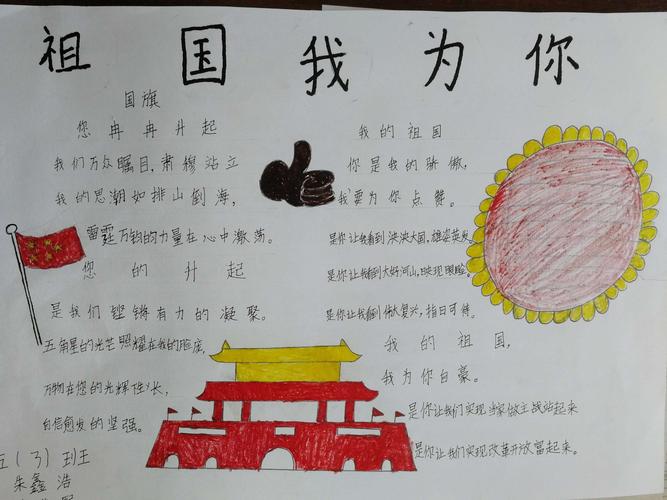 祖国我为你
国旗
您冉冉升起
我们万众瞩目,肃穆站立
我的思潮如排山倒海,
雷霆万钧的力量在心中激荡。
您的升起
是我们铿锵有力的凝聚。
五角星的光芒照耀在我的脸庞,
万物在您的光辉下
自信愈发的坚强。
五(3)班王
朱鑫浩
我的祖国
你是我的骄傲,
我要为你点赞。
是你让我看到泱泱大国,雄姿英发。
是你让我看到大好河山,
是你让我看到伟大复兴,指日可待。
我的祖国,
我为你自豪。
是你让我们实现当家做主战站起来
是你让我们实现改革开放富起来。